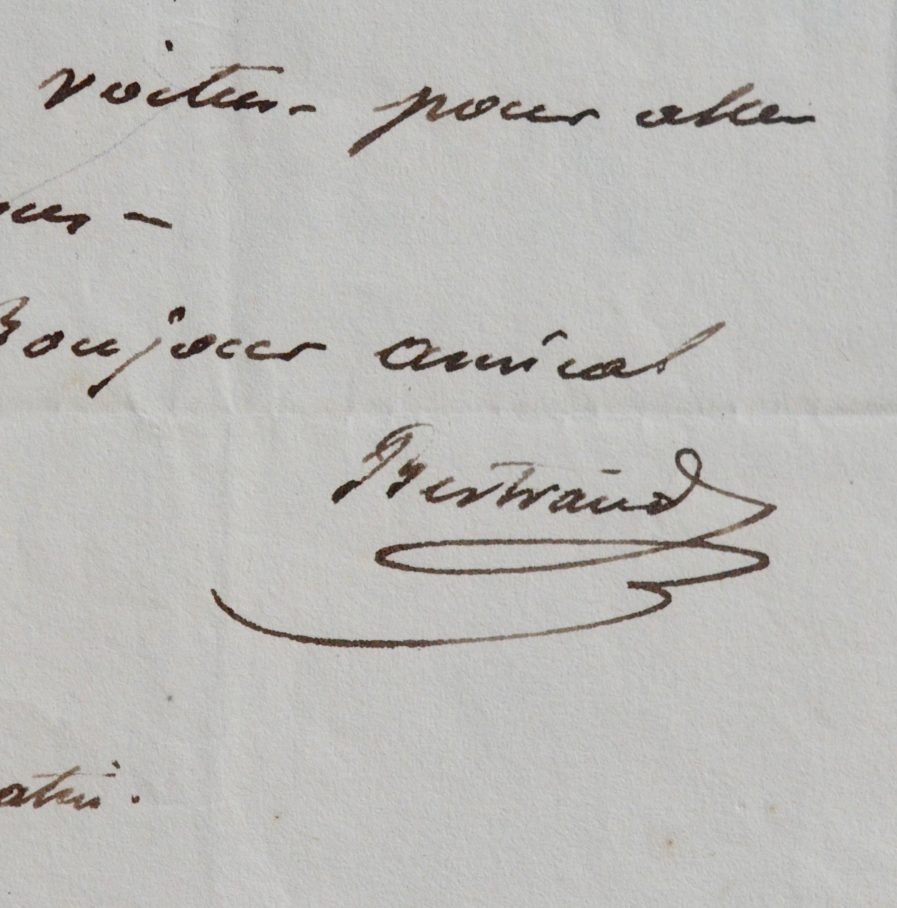 voiture pour aller
Bonjour amical
Bertrand